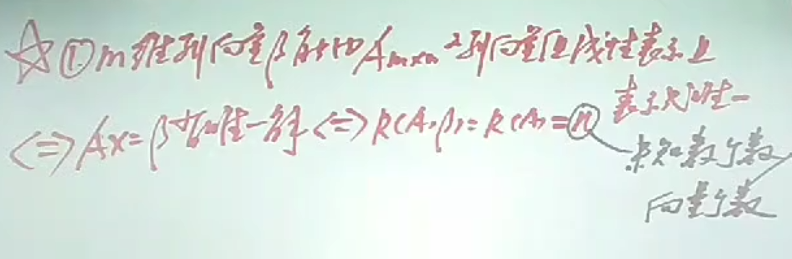 ☆① m维列向量β可由A_{m×n}之列向量组线性表示且
表示式唯一
⇔ Ax=β有唯一解 ⇔ R(A,β)=R(A)=n
未知数个数
向量个数